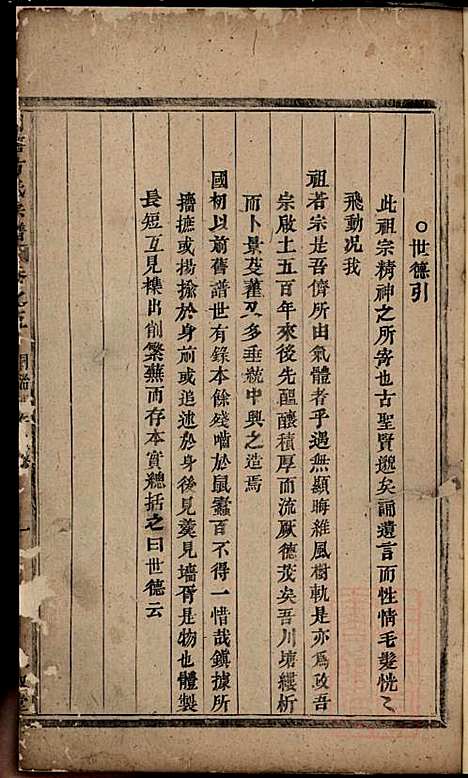 ○世德引
此祖宗精神之所寄也古聖賢邈矣誦遺言而性情毛髮恍ミ
飛動况我
祖若宗是吾儕所由氣體者乎遇無顯晦維風樹軌是亦為政吾
宗啟土五百年來後先醞釀積厚而流厥德茂矣吾川壤縷析
而卜景莫蓳又多垂統中興之造焉
國初以前舊譜世有錄本餘殘嚙於鼠蠹百不得一惜哉鎮據所
擣摭或揚揄於身前或追述於身後見羹見墻胥是物也體製
長短互見檃出削繁蕪而存本實總括之曰世德云